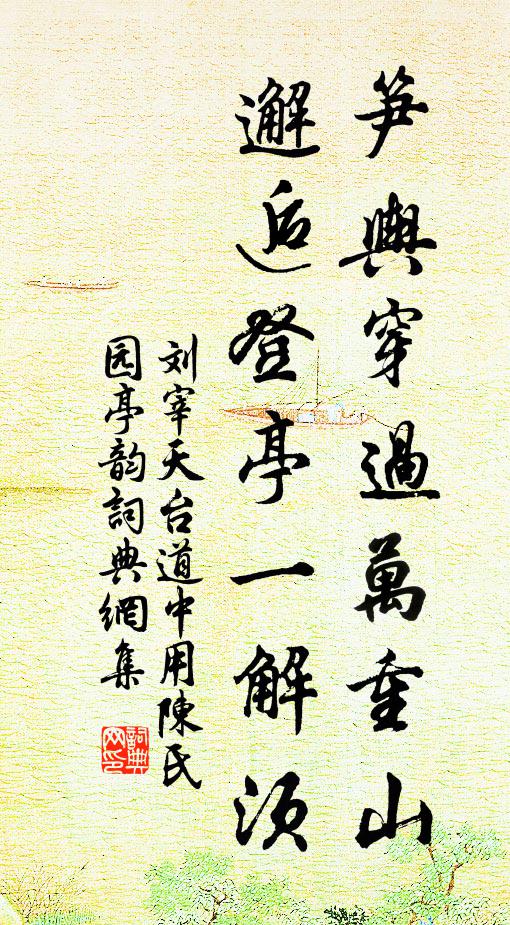 笋輿穿過萬重山
邂逅登亭一解须
刘宰天台道中用陳氏
园亭韵詞典網集
詞典
网印